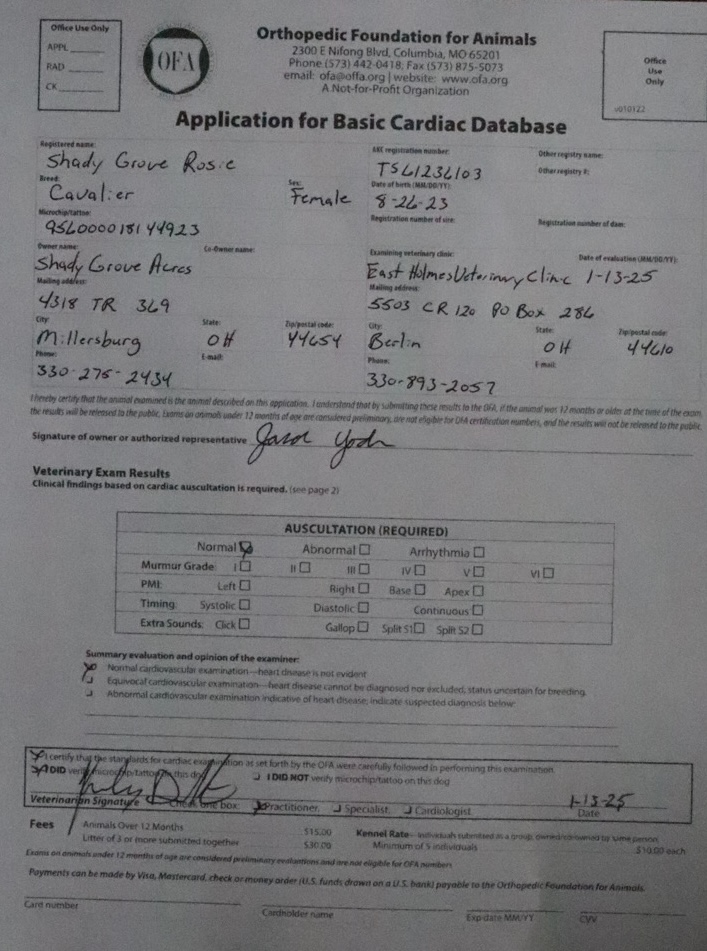 Office Use Only
APPL
RAD
CK
OFA
Orthopedic Foundation for Animals
2300 E Nifong Blvd, Columbia, MO 65201
Phone (573) 442-0418; Fax (573) 875-5073
email: ofa@offa.org | website: www.ofa.org
A Not-for-Profit Organization
Office
Use
Only
v010122
Application for Basic Cardiac Database
Registered name:
Shady Grove Rosie
AKC registration number:
TS61236103
Other registry name:
Other registry #:
Breed:
Cavalier
Sex:
Female
Date of birth (MM/DD/YY):
8-26-23
Microchip/tattoo:
956000018144923
Registration number of sire:
Registration number of dam:
Owner name:
Shady Grove Acres
Co-Owner name:
Examining veterinary clinic:
East Holmes Veterinary Clinic
Date of evaluation (MM/DD/YY):
1-13-25
Mailing address:
4318 TR 369
Mailing address:
5503 CR 120 PO Box 286
City:
Millersburg
State:
OH
Zip/postal code:
44654
City:
Berlin
State:
OH
Zip/postal code:
44610
Phone:
330-275-2434
E-mail:
Phone:
330-893-2057
E-mail:
I hereby certify that the animal examined is the animal described on this application. I understand that by submitting these results to the OFA, if the animal was 12 months or older at the time of the exam,
the results will be released to the public. Exams on animals under 12 months of age are considered preliminary, are not eligible for OFA certification numbers, and the results will not be released to the public.
Signature of owner or authorized representative
Veterinary Exam Results
Clinical findings based on cardiac auscultation is required. (see page 2)
AUSCULTATION (REQUIRED)
Normal Abnormal Arrhythmia
Murmur Grade: I II III IV V VI
PMI: Left Right Base Apex
Timing: Systolic Diastolic Continuous
Extra Sounds: Click Gallop Split S1 Split S2
Summary evaluation and opinion of the examiner:
Normal cardiovascular examination—heart disease is not evident
Equivocal cardiovascular examination—heart disease cannot be diagnosed nor excluded; status uncertain for breeding.
Abnormal cardiovascular examination indicative of heart disease; indicate suspected diagnosis below:
I certify that the standards for cardiac examination as set forth by the OFA were carefully followed in performing this examination.
I DID verify microchip/tattoo on this dog I DID NOT verify microchip/tattoo on this dog
Veterinarian Signature Check one box: Practitioner Specialist Cardiologist
1-13-25
Date
Fees
Animals Over 12 Months $15.00
Litter of 3 or more submitted together $30.00
Kennel Rate—individuals submitted as a group, owned/co-owned by same person
Minimum of 5 individuals $10.00 each
Exams on animals under 12 months of age are considered preliminary evaluations and are not eligible for OFA numbers
Payments can be made by Visa, Mastercard, check or money order (U.S. funds drawn on a U.S. bank) payable to the Orthopedic Foundation for Animals.
Card number
Cardholder name
Exp date MM/YY
CVV